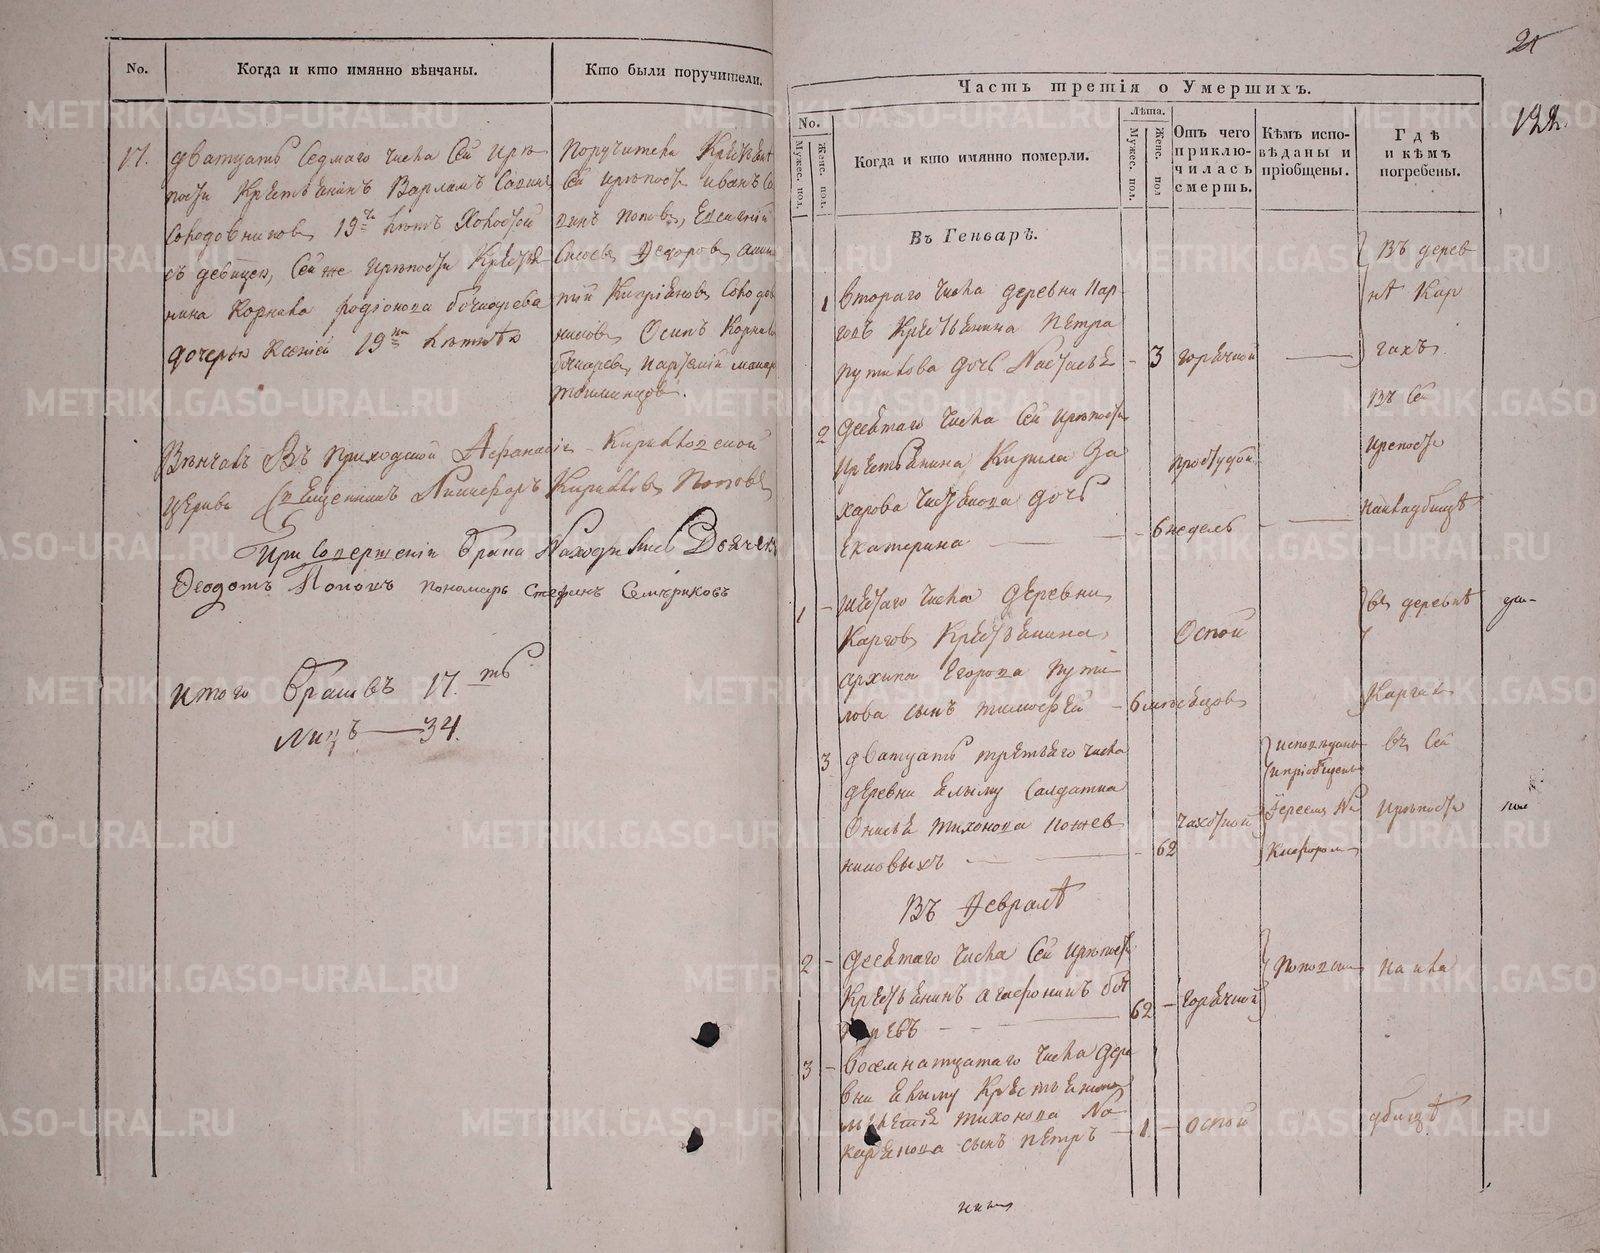 No.
Когда и кто имянно вѣнчаны.
Кто были поручители.
17.
дватцать седмаго числа сей крѣ
пости Крестьянинъ Варламъ Савинъ
Солодовниковъ 19ти лѣтъ холостой
съ девицею, сей же крѣпости Кресть
нина Корнила родіонова бочкарева
дочерью Ксеніей 19ти лѣтнѣю
поручители Крестьян
сей крѣпости иванъ Са
винъ поповъ, Евсигній
Сысоевъ Ѳедоровъ
Кипріяновъ Солодов
никовъ Осипъ Корнил
бочкаревъ
Вѣнчалъ Въ приходской Афанасіе - Кирилловской
церкви Священникъ Никифоръ Кирилловъ Поповъ
При совершеніи брака Находились Дьячекъ
Ѳеодотъ Поповъ пономарь Стефанъ
итого браковъ 17.ть
лицъ — 34.
122.
Часть третія о Умершихъ.
No.
Мужес. пол.
Женс. пол.
Когда и кто имянно померли.
Лѣта.
Мужес. пол.
Женс. пол
Отъ чего приклю-чилась смерть.
Кѣмъ испо-вѣданы и пріобщены.
Гдѣ и кѣмъ погребены.
Въ Генварѣ.
1
втораго числа деревни Кар
говъ Крестьянина Петра
путилова дочь Настасья - 3 горячкой
Въ дерев
нѣ Кар
гахъ
2
десятаго числа сей крѣпости
Крестьянина Кирила За
харова дочь
Екатерина - 6 недель
простудой
Въ сей
крепости
на кладбищѣ
1
- шестаго числа деревни
Карговъ Крестьянина
архипа Егорова пути
лова сынъ тимофей - 6 месяцовъ
Оспой
въ деревнѣ
Каргахъ
3
дватцать третьяго числа
деревни Елыму Салдатка
Онисья тихонова
никовыхъ - 62
чахоткой
исповѣдана
и пріобщена
Іереемъ Ни
кифоромъ
въ сей
крѣпости
Въ Ѳевралѣ
2
- десятаго числа сей крѣпости
Крестьянинъ агафоникъ боч
каревъ - 62 - горячкой
Поповымъ
на кла
3
- восемнатцатаго числа дере
вни Елыму Крестьянина
тихонова
сынъ Петръ - 1 - оспой
дбищѣ